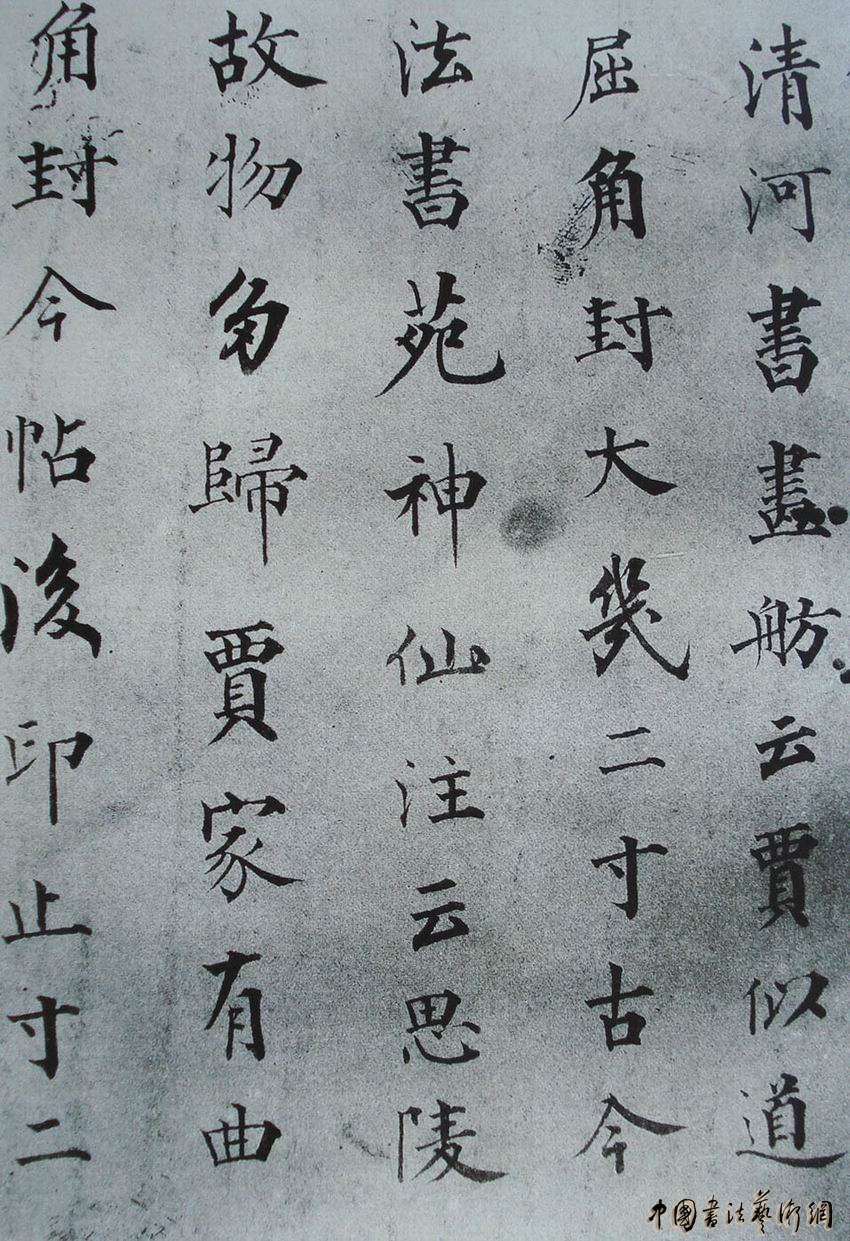 清河書畫舫云賈似道
屈角封大幾二寸古今
法書苑神仙注云思陵
故物多歸賈家有曲
角封今帖後印止寸二
中國書法藝術網